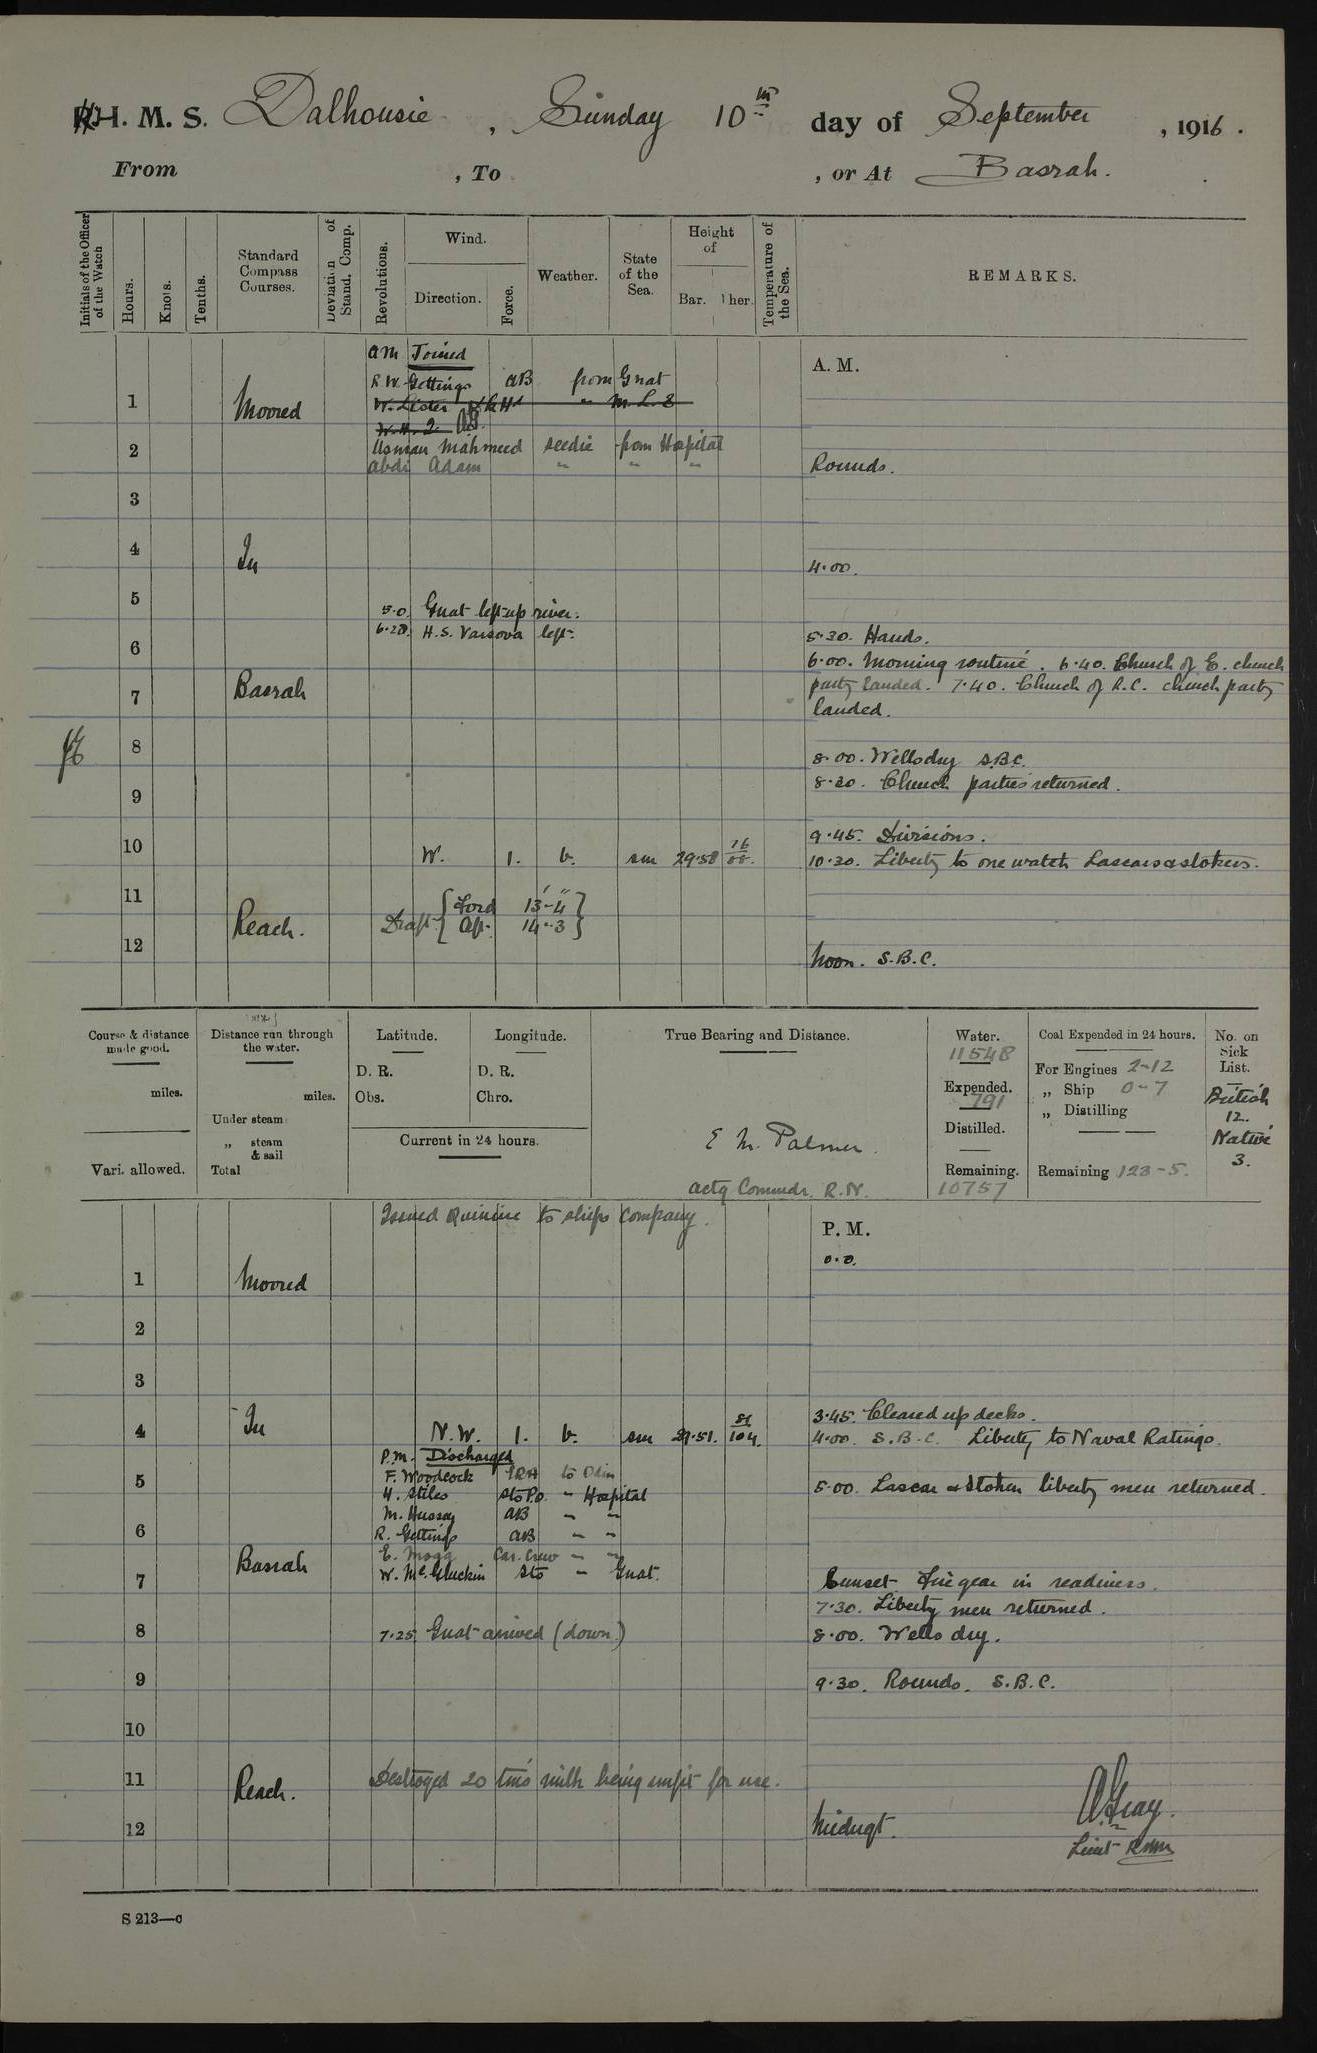 H. M. S. Dalhousie, Sunday 10th day of September, 1916.
From , To , or At Basrah.
Initials of the Officer of the Watch
Hours.
Knots.
Tenths.
Standard Compass Courses.
Deviation of Stand. Comp.
Revolutions.
Wind.
Direction.
Force.
Weather.
State of the Sea.
Height of
Bar. Ther.
Temperature of the Sea.
REMARKS.
am Joined
A. M.
R W. Gettings AB from Gnat
1 Moored W. Lister " M. L. 8
Usman Mahmeed seedie from Hospital
2 Abdi Adam " " " Rounds.
3
4 In 4.00.
5
5.0. Gnat left up river.
6.20. H.S. Varsova left. 5.30. Hands.
6
6.00. Morning routine. 6.40. Church of E. church
7 Basrah party landed. 7.40. Church of R.C. church party
landed.
8 8.00. Wells dry S.B.C.
8.30. Church parties returned.
9
9.45. Divisions.
10 W. 1. b. sm 29.58 10.30. Liberty to one watch Lascars & stokers.
11
Draft { Ford 13'-4" }
Reach. { Aft. 14-3 }
12
Noon. S.B.C.
Course & distance made good.
miles.
Vari. allowed.
Distance run through the water.
miles.
Under steam
„ steam & sail
Total
Latitude.
D. R.
Obs.
Longitude.
D. R.
Chro.
Current in 24 hours.
True Bearing and Distance.
E M. Palmer.
actg Commdr. R.N.
Water.
11548
Expended.
791
Distilled.
Remaining.
10757
Coal Expended in 24 hours.
For Engines 2-12
„ Ship 0-7
„ Distilling
Remaining 123-5.
No. on Sick List.
British
12.
Native
3.
Issued Quinine to ships company.
P. M.
0.0.
1 Moored
2
3
3.45. Cleared up decks.
4 In N.W. 1. b. sm 29.51. 104. 4.00 S.B.C. Liberty to Naval Ratings.
P.M. Discharged
F. Woodcock ERA to Odin
5 H. Stiles Sto P.O. " Hospital 5.00. Lascar & Stoker liberty men returned.
M. Hussey AB " "
6 R. Gettings AB " "
E. Mogg Car. Crew " "
Basrah W. McGluckin Sto " Gnat.
7 Sunset Fire gear in readiness.
7.30. Liberty men returned.
8 7.25 Gnat arrived (down) 8.00. Wells dry.
9 9.30. Rounds. S.B.C.
10
11 Reach. Destroyed 20 tins milk being unfit for use.
12 Midngt.
A. Gray.
Lieut RIM
S 213—c